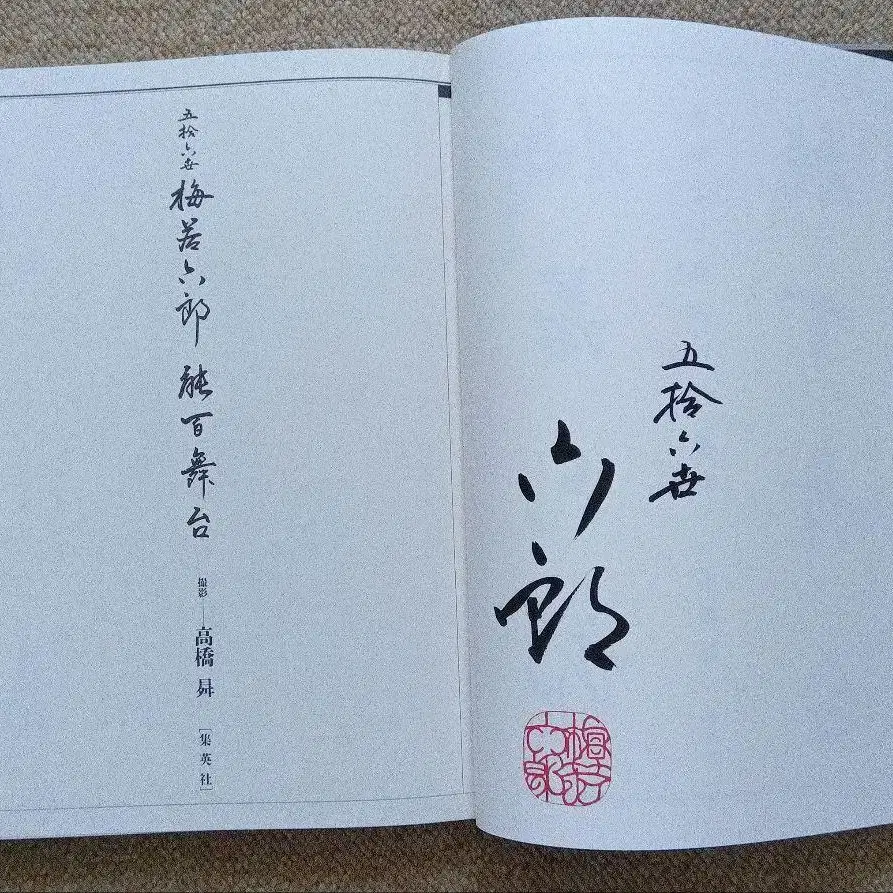 五拾六世
六郎
梅若
六郎
五拾六世 梅若六郎 能百舞台
撮影 高橋 昇
[集英社]